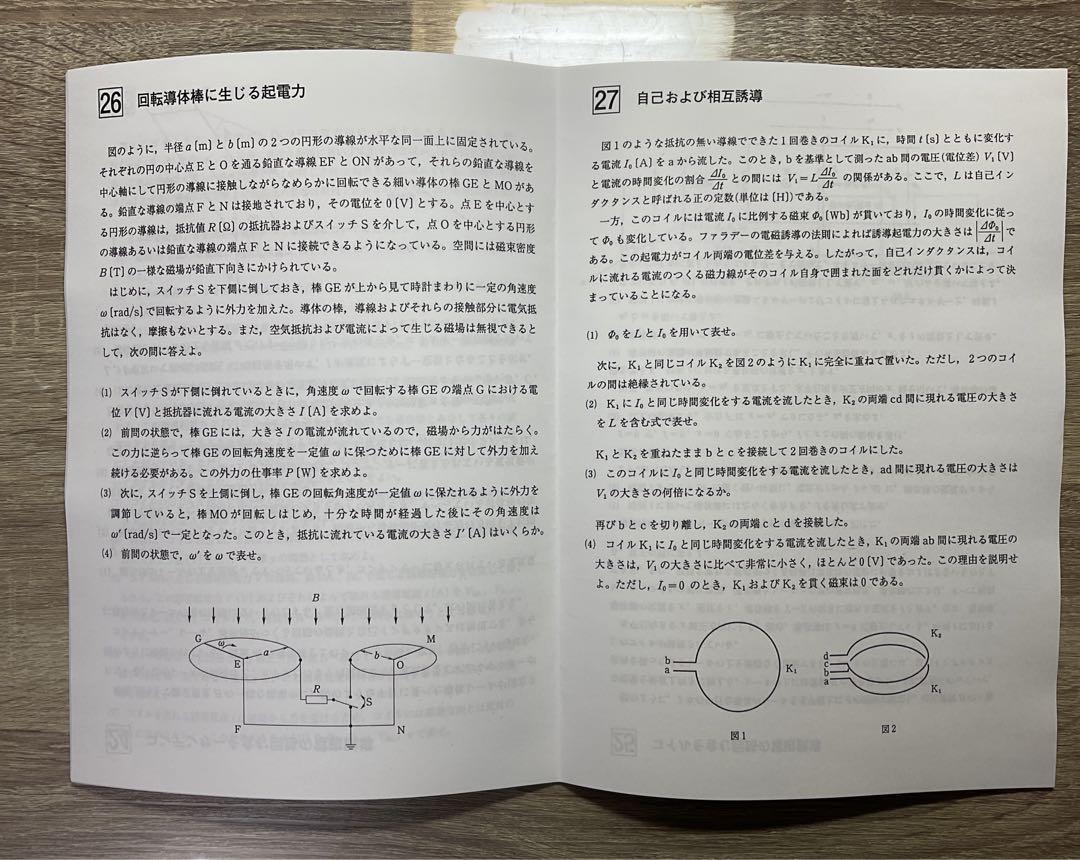 26 回転導体棒に生じる起電力
図のように,半径a〔m〕とb〔m〕の2つの円形の導線が水平な同一面上に固定されている。
それぞれの円の中心点EとOを通る鉛直な導線EFとONがあって,それらの鉛直な導線を
中心軸にして円形の導線に接触しながらなめらかに回転できる細い導体の棒GEとMOがあ
る。鉛直な導線の端点FとNは接地されており,その電位を0〔V〕とする。点Eを中心とす
る円形の導線は,抵抗値R〔Ω〕の抵抗器およびスイッチSを介して,点Oを中心とする円形
の導線あるいは鉛直な導線の端点FとNに接続できるようになっている。空間には磁束密度
B〔T〕の一様な磁場が鉛直下向きにかけられている。
はじめに,スイッチSを下側に倒しておき,棒GEが上から見て時計まわりに一定の角速度
ω〔rad/s〕で回転するように外力を加えた。導体の棒,導線およびそれらの接触部分に電気抵
抗はなく,摩擦もないとする。また,空気抵抗および電流によって生じる磁場は無視できると
して,次の問に答えよ。
(1) スイッチSが下側に倒れているときに,角速度ωで回転する棒GEの端点Gにおける電
位V〔V〕と抵抗器に流れる電流の大きさI〔A〕を求めよ。
(2) 前問の状態で,棒GEには,大きさIの電流が流れているので,磁場から力がはたらく。
この力に逆らって棒GEの回転角速度を一定値ωに保つために棒GEに対して外力を加え
続ける必要がある。この外力の仕事率P〔W〕を求めよ。
(3) 次に,スイッチSを上側に倒し,棒GEの回転角速度が一定値ωに保たれるように外力を
調節していると,棒MOが回転しはじめ,十分な時間が経過した後にその角速度は
ω′〔rad/s〕で一定となった。このとき,抵抗に流れている電流の大きさI′〔A〕はいくらか。
(4) 前問の状態で,ω′をωで表せ。
B
G
ω
a
E
M
b
O
R
S
F
N
27 自己および相互誘導
図1のような抵抗の無い導線でできた1回巻きのコイルK₁に,時間t〔s〕とともに変化す
る電流I₀〔A〕をaから流した。このとき,bを基準として測ったab間の電圧(電位差)V₁〔V〕
と電流の時間変化の割合 ΔI₀/Δt との間には V₁=L ΔI₀/Δt の関係がある。ここで,Lは自己イン
ダクタンスと呼ばれる正の定数(単位は〔H〕)である。
一方,このコイルには電流I₀に比例する磁束Φ₀〔Wb〕が貫いており,I₀の時間変化に従っ
てΦ₀も変化している。ファラデーの電磁誘導の法則によれば誘導起電力の大きさは|ΔΦ₀/Δt|で
ある。この起電力がコイル両端の電位差を与える。したがって,自己インダクタンスは,コイ
ルに流れる電流のつくる磁力線がそのコイル自身で囲まれた面をどれだけ貫くかによって決
まっていることになる。
(1) Φ₀をLとI₀を用いて表せ。
次に,K₁と同じコイルK₂を図2のようにK₁に完全に重ねて置いた。ただし,2つのコイ
ルの間は絶縁されている。
(2) K₁にI₀と同じ時間変化をする電流を流したとき,K₂の両端cd間に現れる電圧の大きさ
をLを含む式で表せ。
K₁とK₂を重ねたままbとcを接続して2回巻きのコイルにした。
(3) このコイルにI₀と同じ時間変化をする電流を流したとき,ad間に現れる電圧の大きさは
V₁の大きさの何倍になるか。
再びbとcを切り離し,K₂の両端cとdを接続した。
(4) コイルK₁にI₀と同じ時間変化をする電流を流したとき,K₁の両端ab間に現れる電圧の
大きさは,V₁の大きさに比べて非常に小さく,ほとんど0〔V〕であった。この理由を説明せ
よ。ただし,I₀=0のとき,K₁およびK₂を貫く磁束は0である。
b
a
K₁
図1
d
c
b
a
K₂
K₁
図2